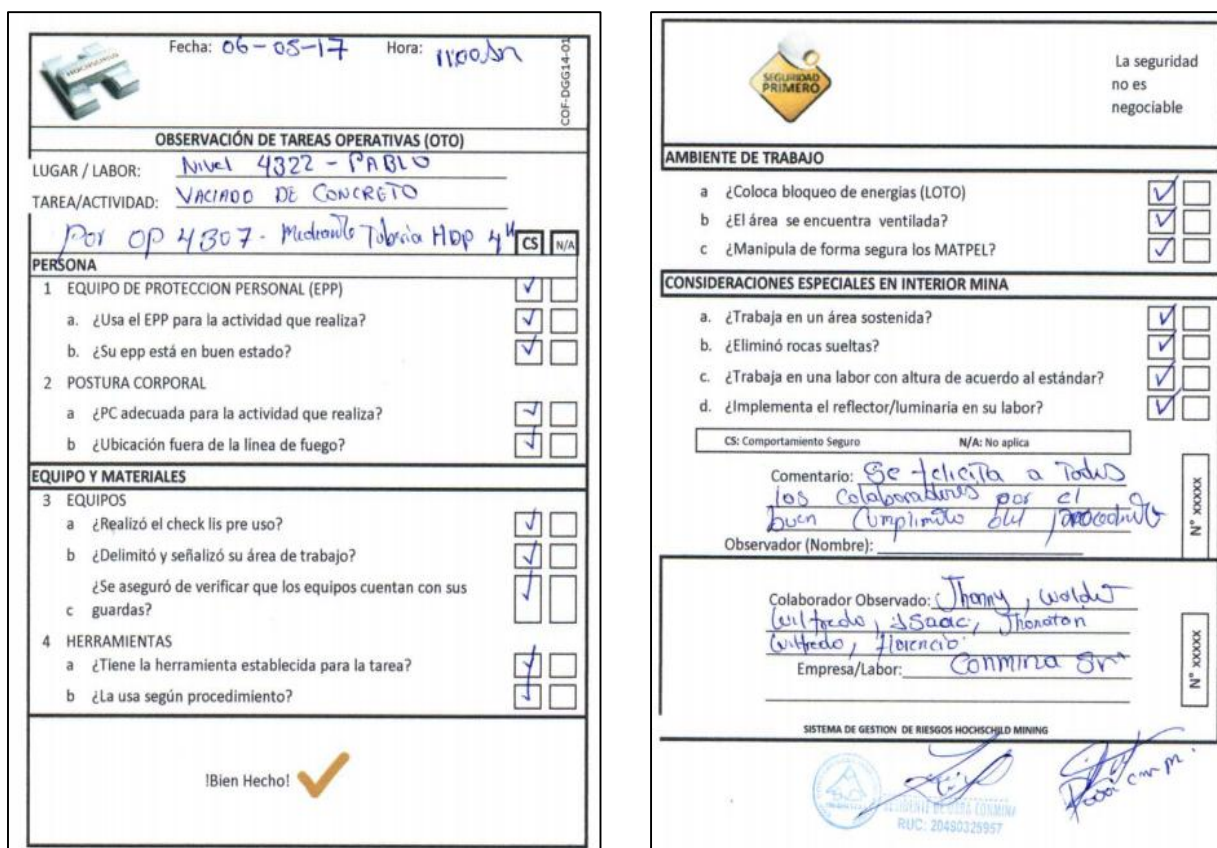 HOCHSCHILD
Fecha: 06-05-17 Hora: 11:00
COF-DGG14-01
OBSERVACIÓN DE TAREAS OPERATIVAS (OTO)
LUGAR / LABOR: Nivel 4322 - PABLO
TAREA/ACTIVIDAD: VACIADO DE CONCRETO
Por OP 4307 - Mediante Tuberia HDP 4"
CS N/A
PERSONA
1 EQUIPO DE PROTECCION PERSONAL (EPP)
a. ¿Usa el EPP para la actividad que realiza?
b. ¿Su epp está en buen estado?
2 POSTURA CORPORAL
a ¿PC adecuada para la actividad que realiza?
b ¿Ubicación fuera de la línea de fuego?
EQUIPO Y MATERIALES
3 EQUIPOS
a ¿Realizó el check lis pre uso?
b ¿Delimitó y señalizó su área de trabajo?
¿Se aseguró de verificar que los equipos cuentan con sus
c guardas?
4 HERRAMIENTAS
a ¿Tiene la herramienta establecida para la tarea?
b ¿La usa según procedimiento?
!Bien Hecho!
SEGURIDAD
PRIMERO
La seguridad
no es
negociable
AMBIENTE DE TRABAJO
a ¿Coloca bloqueo de energias (LOTO)
b ¿El área se encuentra ventilada?
c ¿Manipula de forma segura los MATPEL?
CONSIDERACIONES ESPECIALES EN INTERIOR MINA
a. ¿Trabaja en un área sostenida?
b. ¿Eliminó rocas sueltas?
c. ¿Trabaja en una labor con altura de acuerdo al estándar?
d. ¿Implementa el reflector/luminaria en su labor?
CS: Comportamiento Seguro N/A: No aplica
Comentario: Se felicita a Todos
los Colaboradores por el
buen Cumplimito del
Observador (Nombre):
N° xxxxx
Colaborador Observado: Jhonny,
Wilfredo, Isaac, Jhonatan
Wilfredo, Florencio.
Empresa/Labor: Conmina
N° xxxxx
SISTEMA DE GESTION DE RIESGOS HOCHSCHILD MINING
RESIDENTE DE OBRA CONMINA
RUC: 20480325957